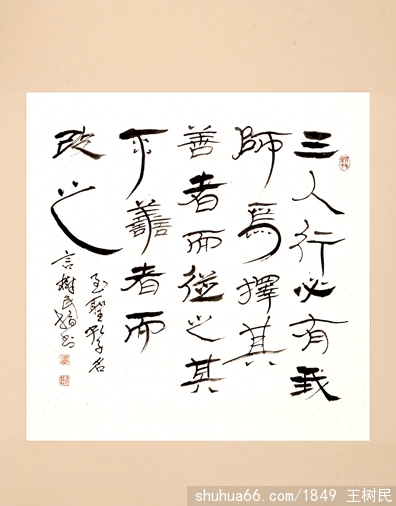 三人行必有我
師焉擇其
善者而從之其
不善者而
改之
至聖孔子名
言樹民書
shuhua66.com/1849 王树民